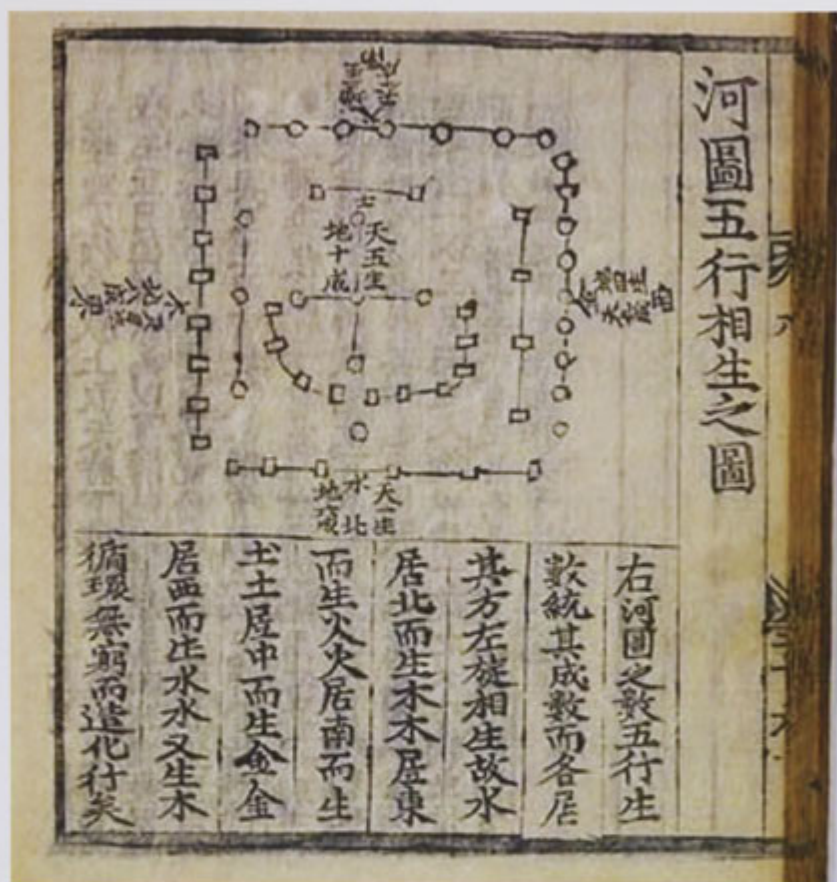 河圖五行相生之圖
天五生
土
地十成
天一生
水北
地六成
右河圖之數五行生
數統其成數而各居
其方左旋相生故水
居北而生木木居東
而生火火居南而生
土土居中而生金金
居西而生水水又生木
循環無窮而造化行矣